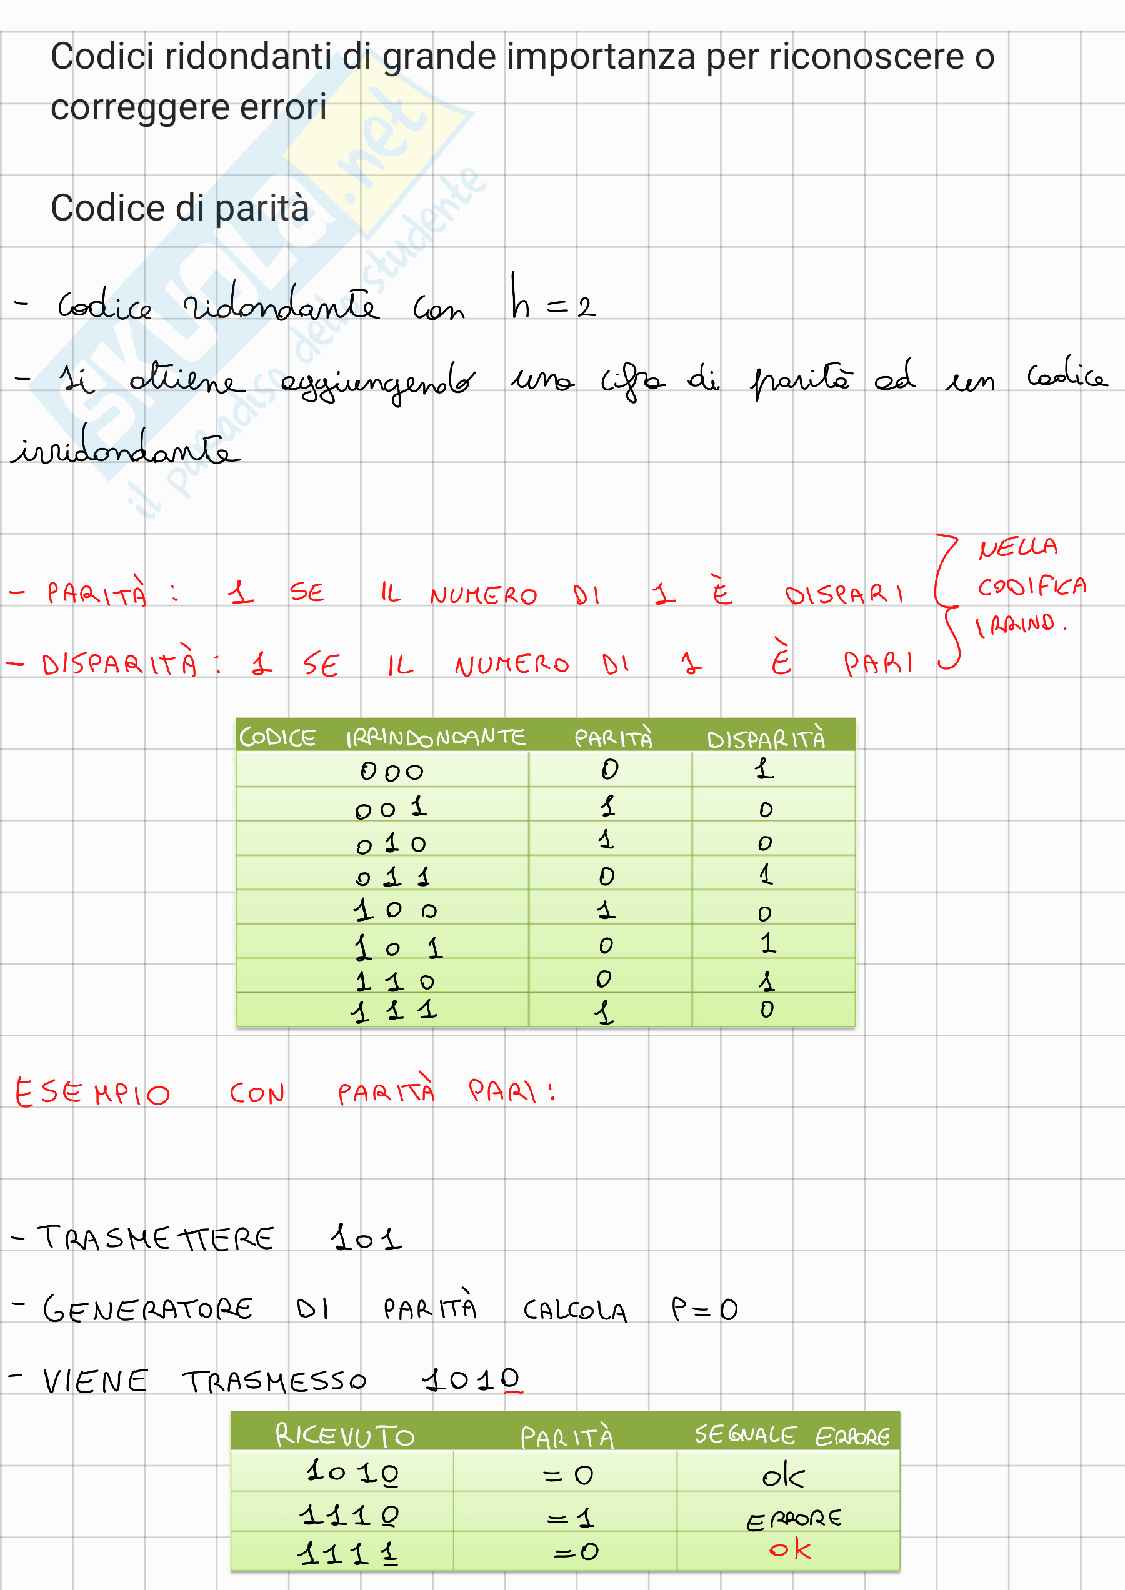 Codici ridondanti di grande importanza per riconoscere o
correggere errori
Codice di parità
- Codice ridondante con h = 2
- si ottiene aggiungendo una cifra di parità ad un codice
irridondante
- PARITÀ : 1 SE IL NUMERO DI 1 È DISPARI
- DISPARITÀ : 1 SE IL NUMERO DI 1 È PARI
NELLA
CODIFICA
IRRIND.
CODICE IRRINDONDANTE PARITÀ DISPARITÀ
000 0 1
001 1 0
010 1 0
011 0 1
100 1 0
101 0 1
110 0 1
111 1 0
ESEMPIO CON PARITÀ PARI :
- TRASMETTERE 101
- GENERATORE DI PARITÀ CALCOLA P=0
- VIENE TRASMESSO 1010
RICEVUTO PARITÀ SEGNALE ERRORE
1010 = 0 ok
1110 = 1 ERRORE
1111 = 0 ok
SKUOLA.net
il paradiso dello studente